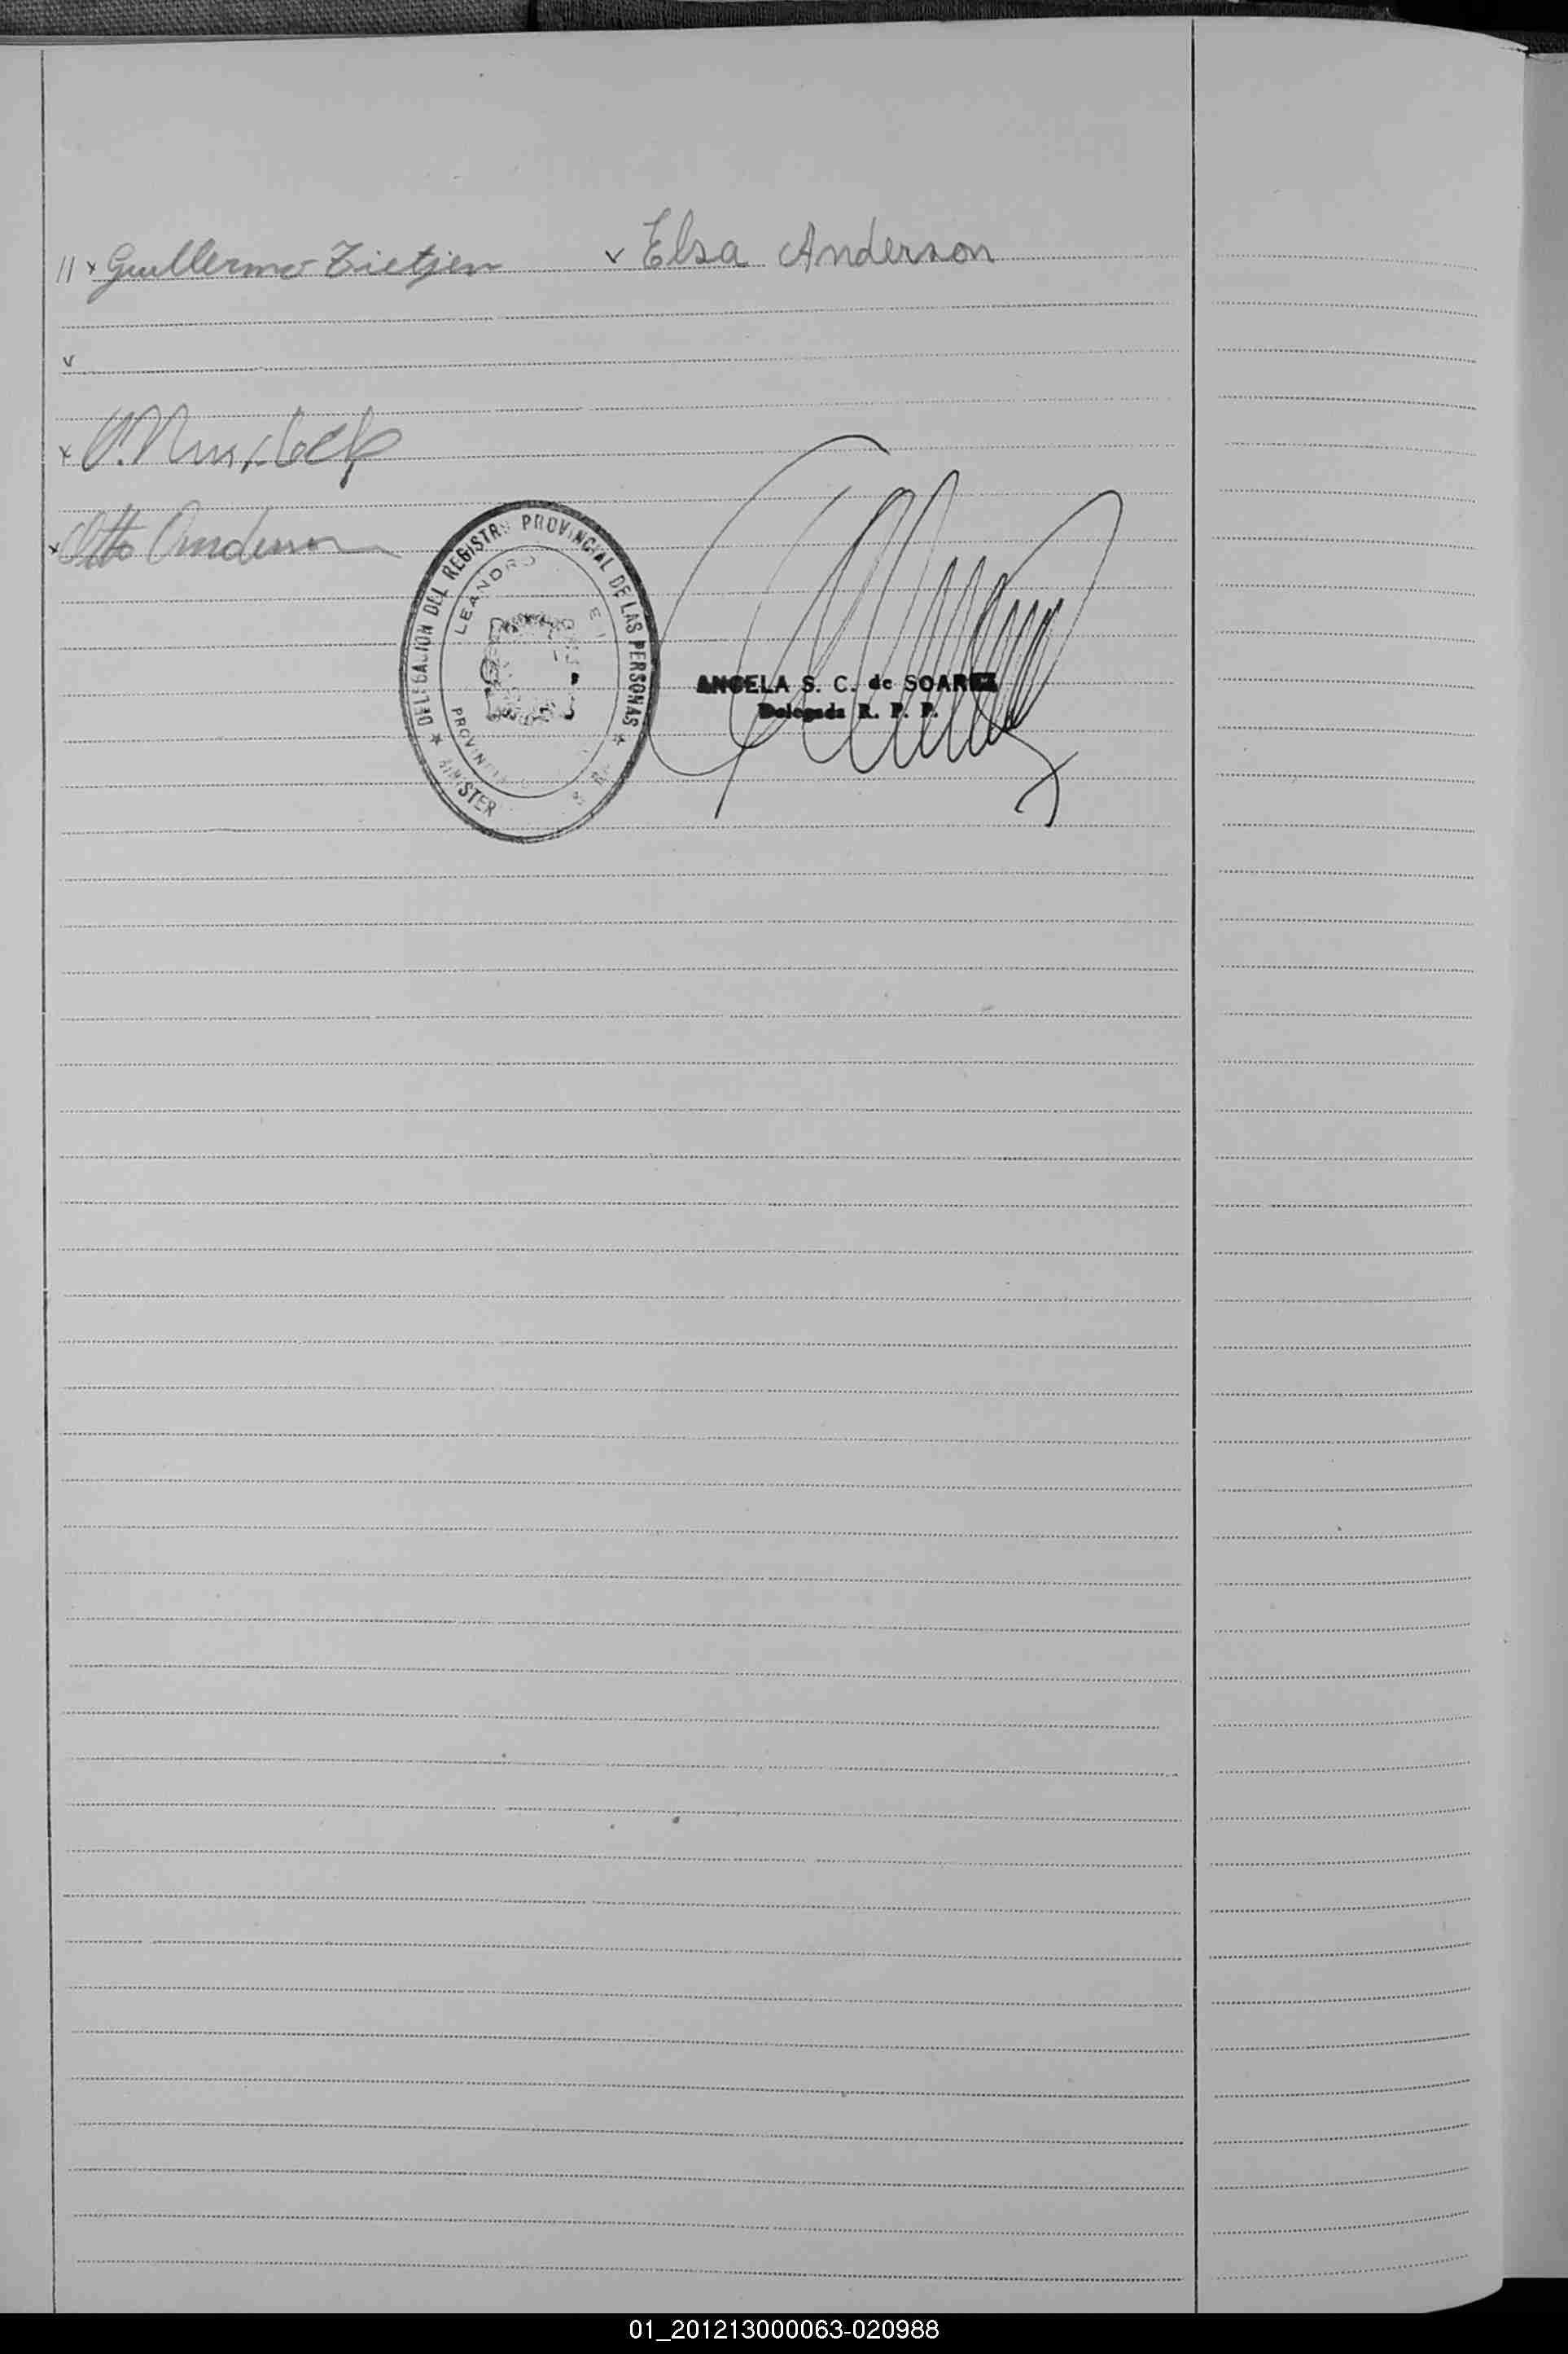 // x Guillermo Tietjen v Elsa Anderson
v
x
x Otto Anderson
DELEGACION DEL REGISTRO PROVINCIAL DE LAS PERSONAS
LEANDRO
PROVINCIA
MINISTER
ANGELA S. C. de SOAREZ
Delegada R. P. P.
01_201213000063-020988